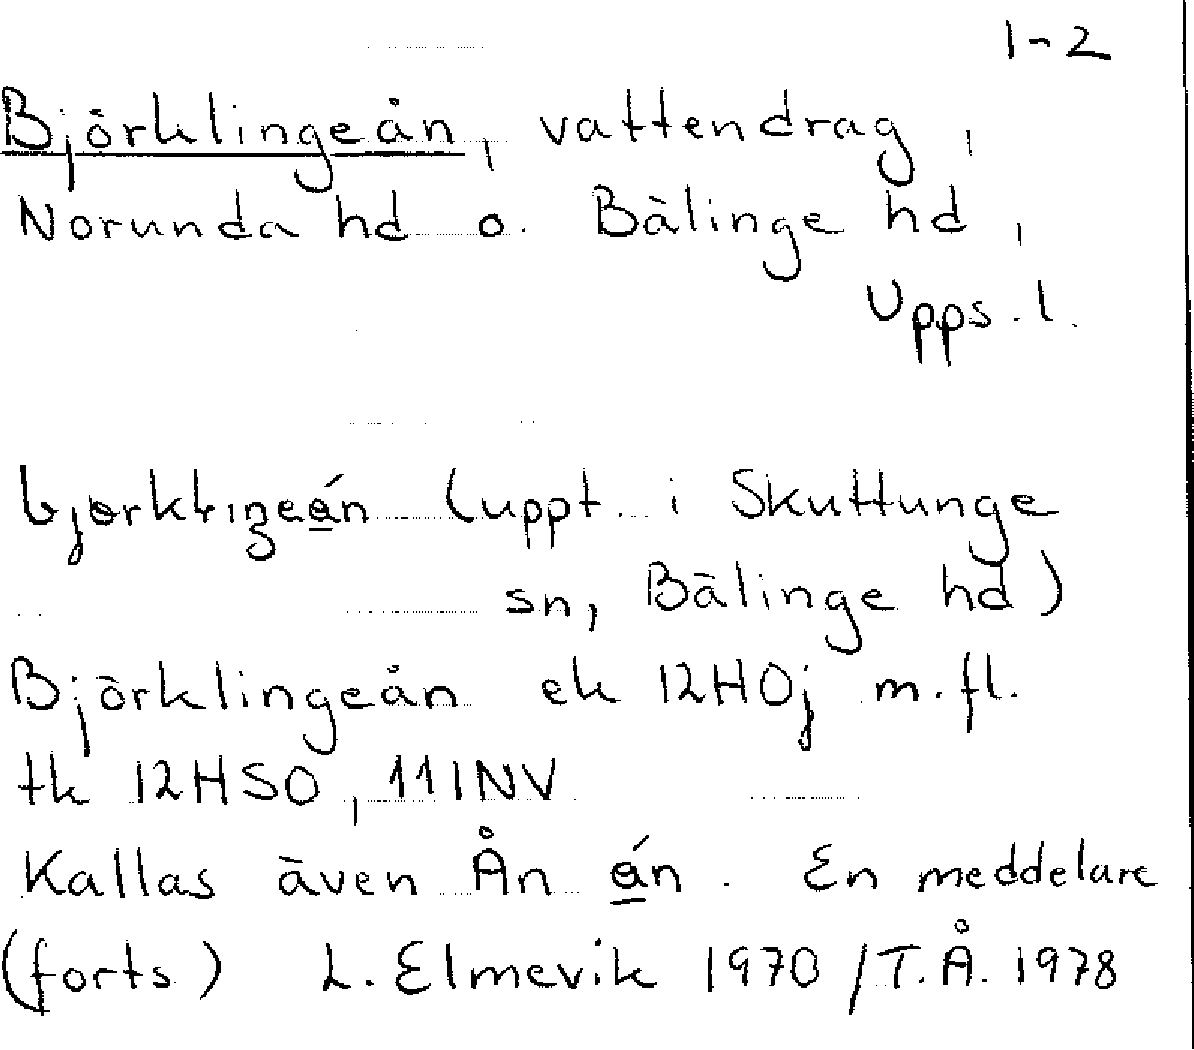 1-2
Björklingeån, vattendrag,
Norunda hd o. Bälinge hd,
Upps. l.
(uppt. i Skuttunge
sn, Bälinge hd)
Björklingeån ek 12H0j m.fl.
tk 12HSO, 11INV
Kallas även Ån . En meddelare
(forts) L. Elmevik 1970 /T.Å. 1978